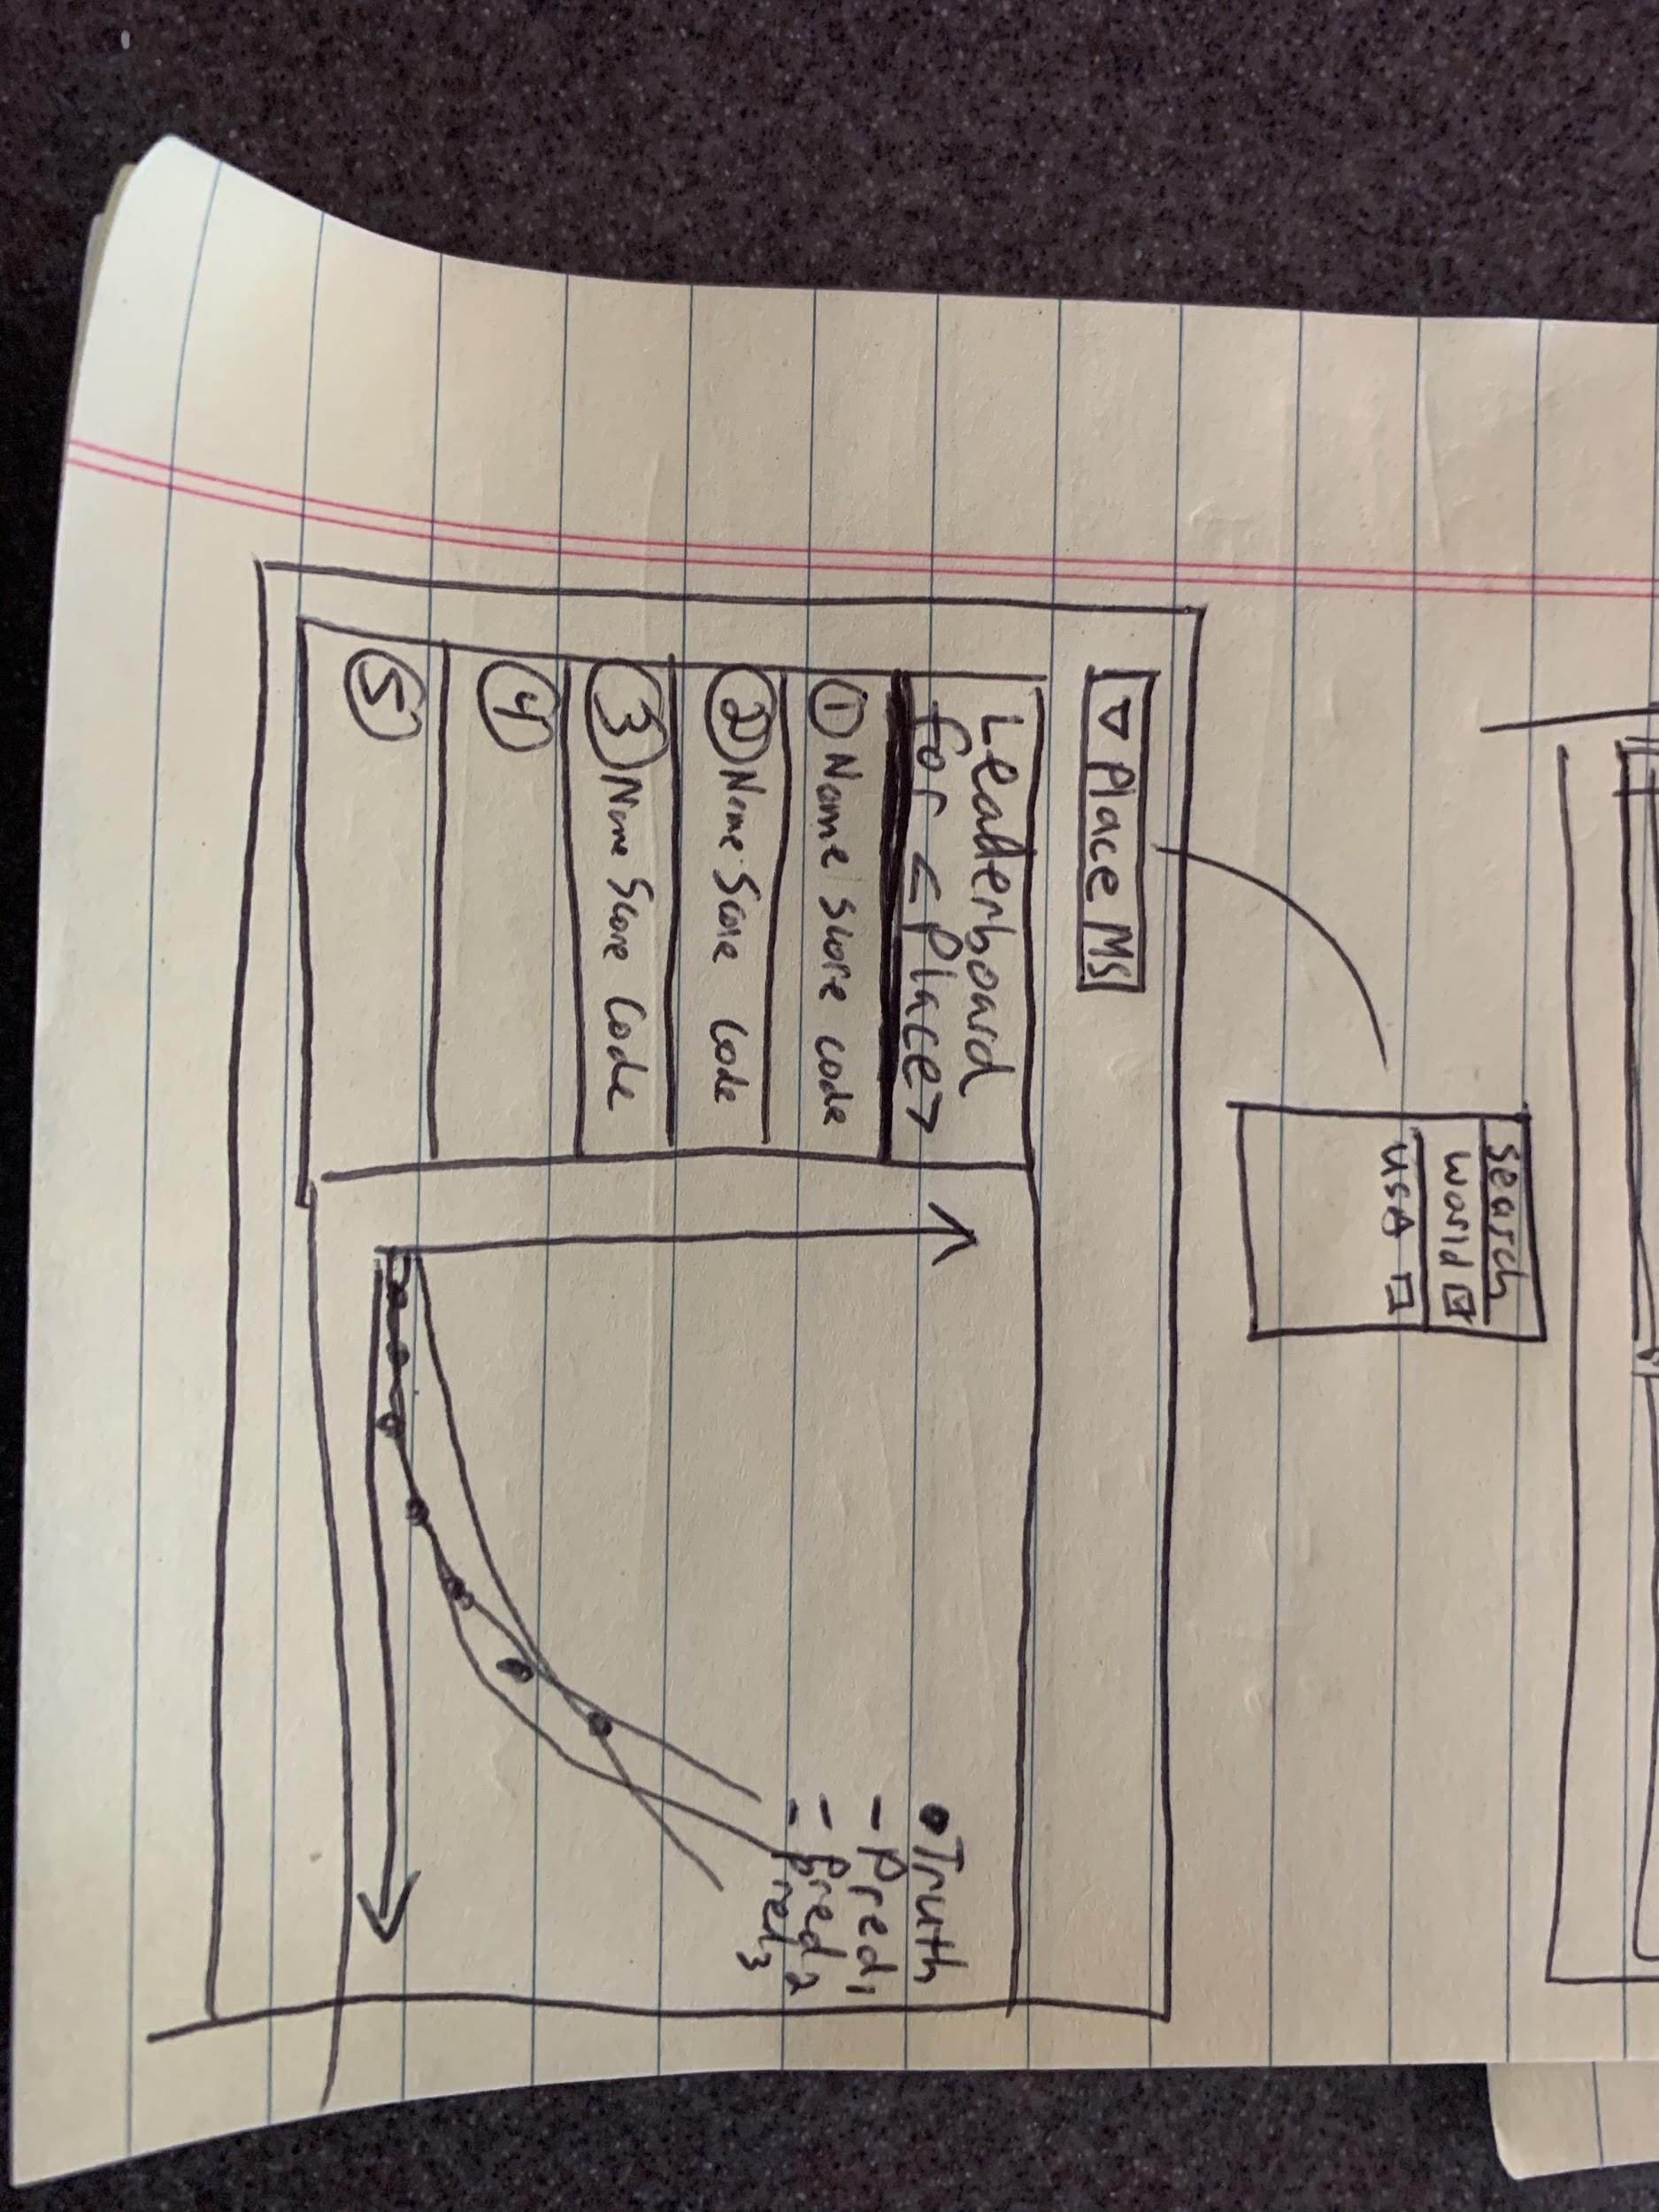 search
world
USA
▽ Place MS
Leaderboard
for <Place>
① Name Score code
② Name Score Code
③ Name Score Code
④
⑤
• Truth
- Pred 1
- Pred 2
- Pred 3